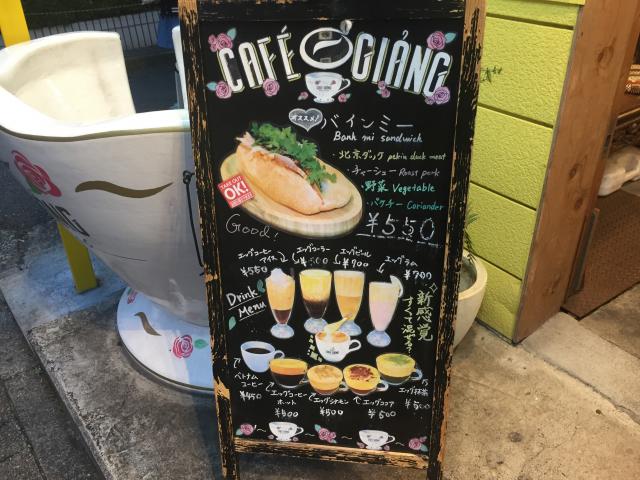 CAFÉ GIẢNG
オススメ!
バインミー
Banh mi sandwich
北京ダック pekin duck meat
チャーシュー Roast pork
野菜 Vegetable
パクチー Coriander
TAKE OUT
OK!
Good!
¥550
エッグコーヒー
アイス
¥550
エッグコーラー
エッグビール
¥700
エッグラム
¥700
Drink
Menu
新感覚
すぐ混ぜる?
ベトナム
コーヒー
¥450
エッグコーヒー
ホット
¥500
エッグシナモン
¥500
エッグココア
¥500
エッグ抹茶
¥500